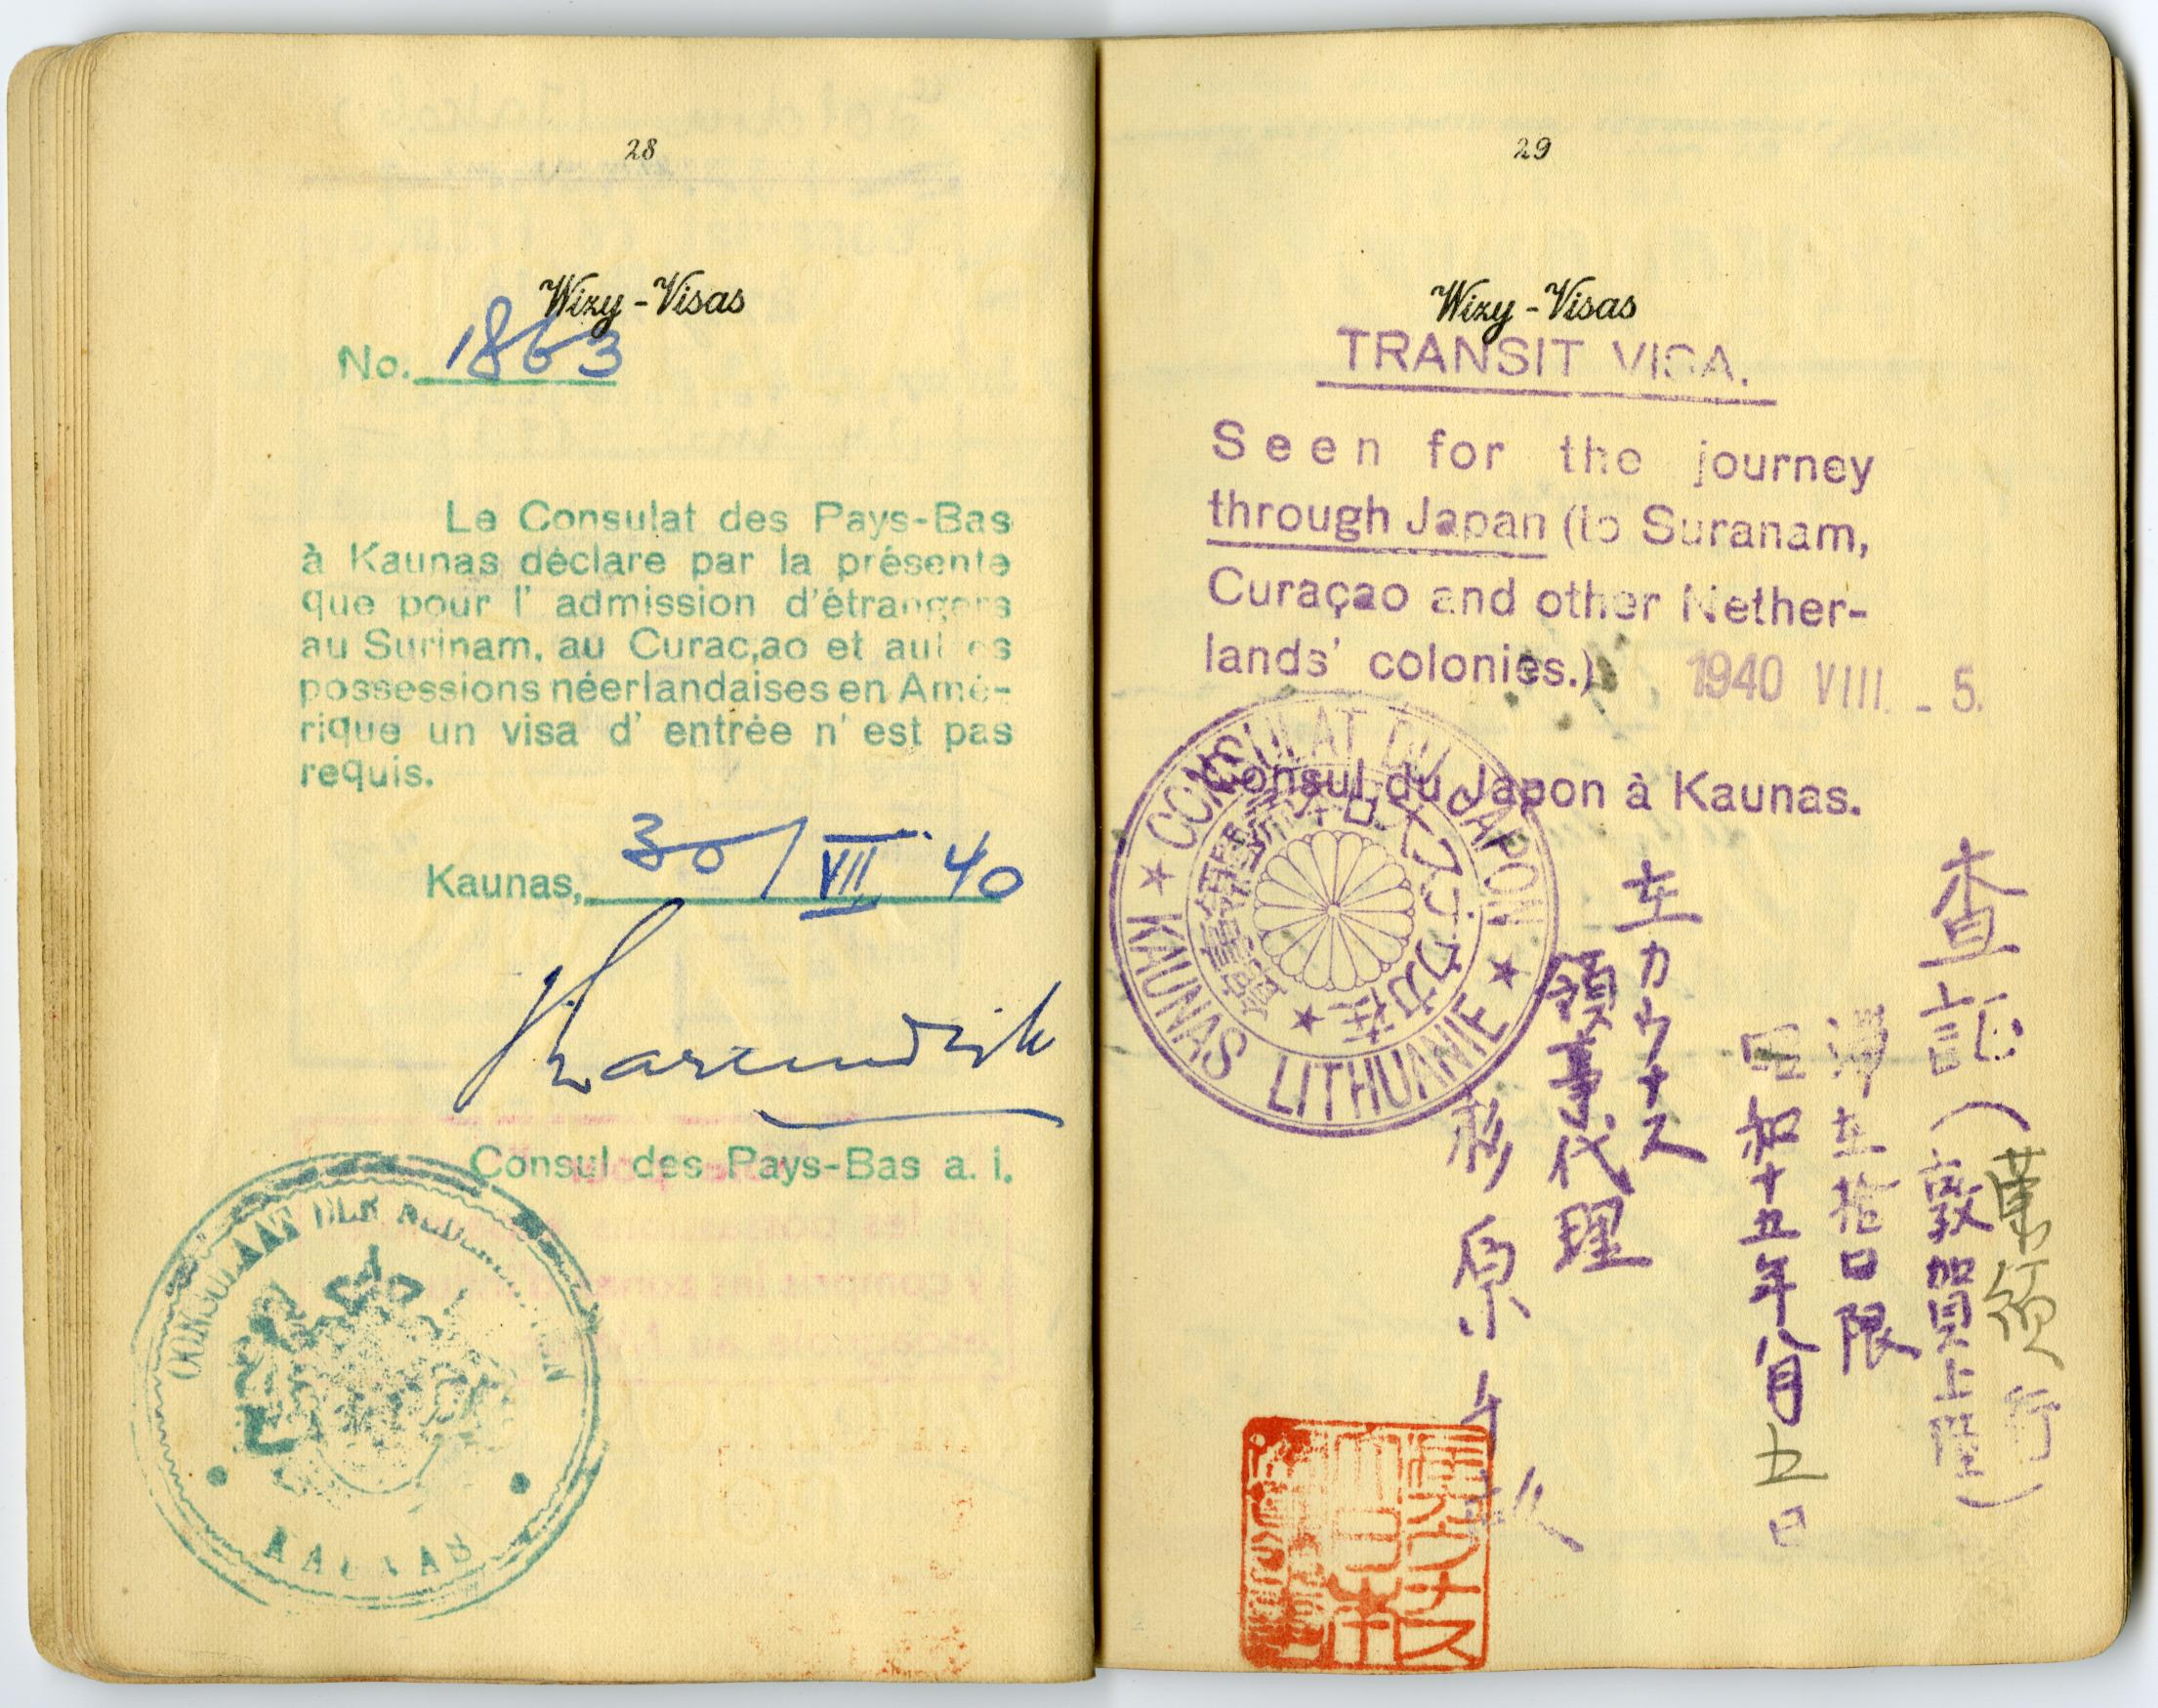 28
Wizy - Visas
No. 1863
Le Consulat des Pays-Bas
à Kaunas déclare par la présente
que pour l' admission d'étrangers
au Surinam, au Curac,ao et autres
possessions néerlandaises en Amé-
rique un visa d' entrée n' est pas
requis.
Kaunas, 30/VII 40
Consul des Pays-Bas a. i.
CONSULAAT DER NEDERLANDEN
KAUNAS
29
Wizy - Visas
TRANSIT VISA.
Seen for the journey
through Japan (to Suranam,
Curaçao and other Nether-
lands' colonies.)
1940 VIII. - 5.
Consul du Japon à Kaunas.
CONSULAT DU JAPON
KAUNAS LITHUANIE
査証(敦賀上陸)
行
滞在拾日限
昭和十五年八月五日
在カウナス
領事代理
杉原千畝
在カウナス
大日本